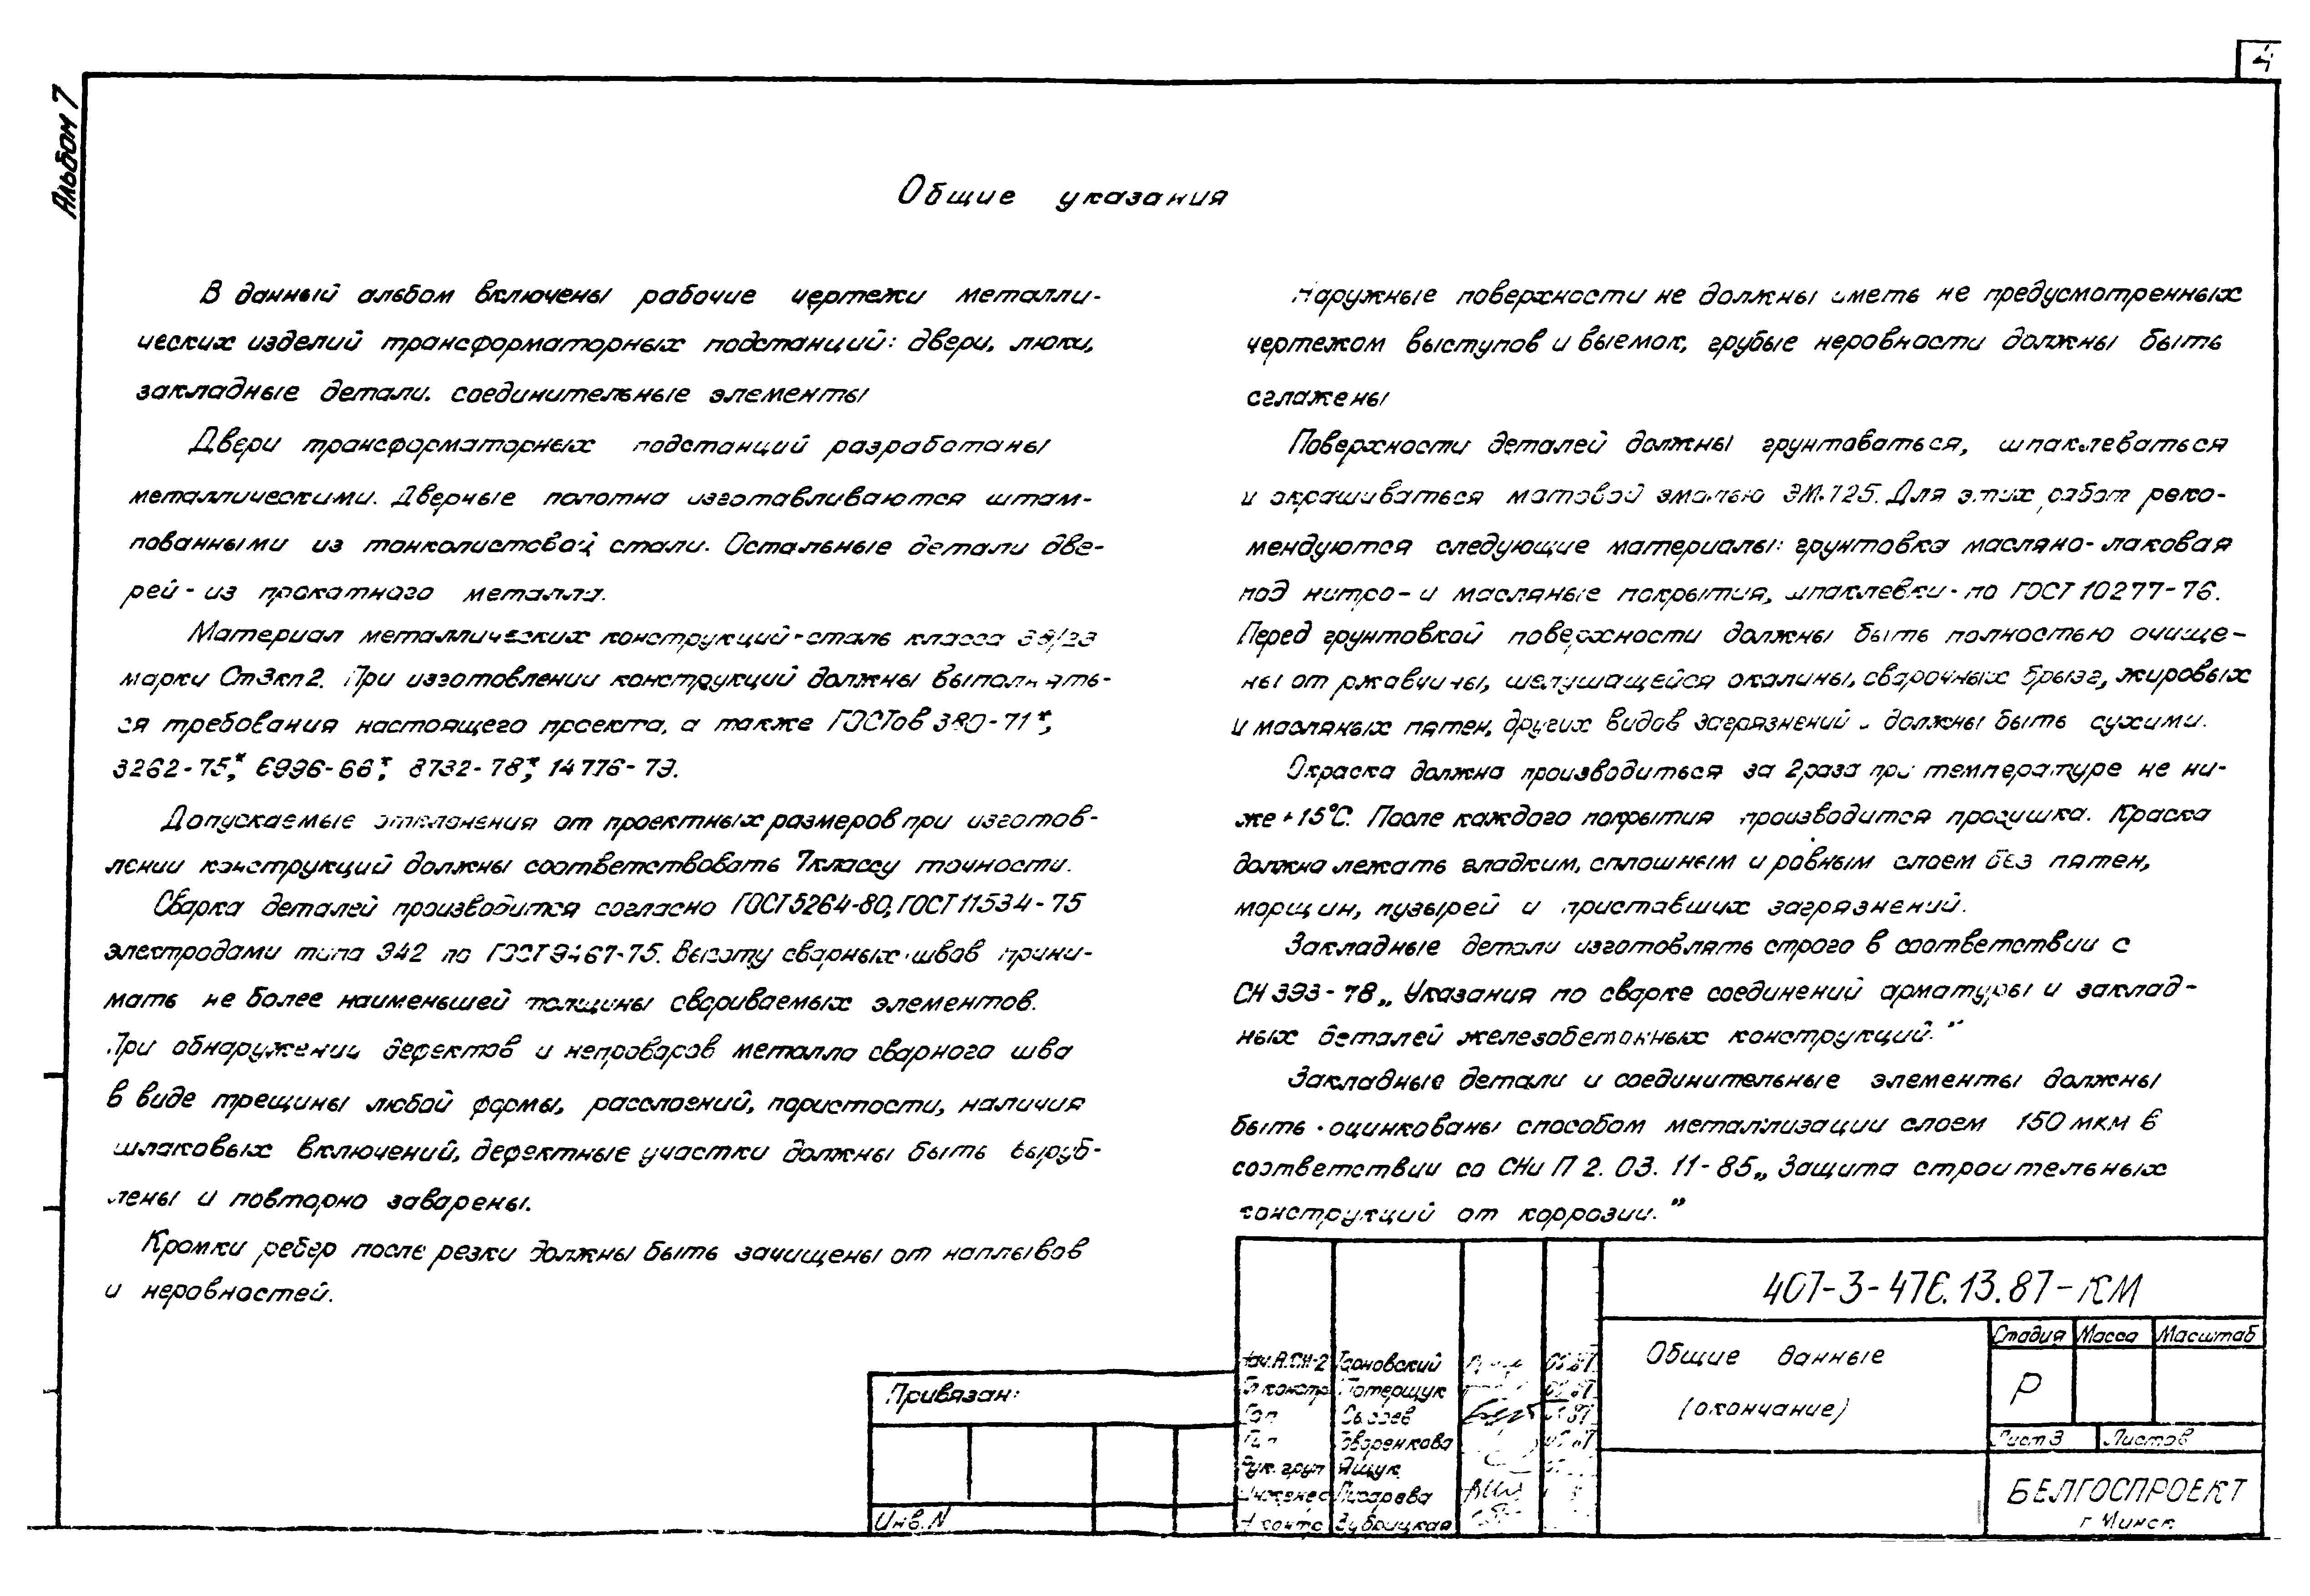 4
Альбом 7
Общие указания
В данный альбом включены рабочие чертежи металли-
ческих изделий трансформаторных подстанций: двери, люки,
закладные детали. соединительные элементы
Двери трансформаторных подстанций разработаны
металлическими. Дверные полотна изготавливаются штам-
пованными из тонколистовой стали. Остальные детали две-
рей - из прокатного металла.
Материал металлических конструкций - сталь класса 38/23
марки Ст3кп2. При изготовлении конструкций должны выполнять-
ся требования настоящего проекта, а также ГОСТов 380-71*,
3262-75*, 6996-66*, 8732-78*, 14776-79.
Допускаемые отклонения от проектных размеров при изготов-
лении конструкций должны соответствовать 7классу точности.
Сварка деталей производится согласно ГОСТ 5264-80, ГОСТ 11534-75
электродами типа Э42 по ГОСТ 9467-75. Высоту сварных швов прини-
мать не более наименьшей толщины свариваемых элементов.
При обнаружении дефектов и непроваров металла сварного шва
в виде трещины любой формы, расслоений, пористости, наличия
шлаковых включений, дефектные участки должны быть выруб-
лены и повторно заварены.
Кромки ребер после резки должны быть зачищены от наплывов
и неровностей.
Наружные поверхности не должны иметь не предусмотренных
чертежом выступов и выемок, грубые неровности должны быть
сглажены
Поверхности деталей должны грунтоваться, шпаклеваться
и окрашиваться матовой эмалью ЭМ-725. Для этих работ реко-
мендуются следующие материалы: грунтовка масляно-лаковая
под нитро- и масляные покрытия, шпаклевки - по ГОСТ 10277-76.
Перед грунтовкой поверхности должны быть полностью очище-
ны от ржавчины, шелушащейся окалины, сварочных брызг, жировых
и масляных пятен, других видов загрязнений и должны быть сухими.
Окраска должна производиться за 2раза при температуре не ни-
же +15°С. После каждого покрытия производится просушка. Краска
должна лежать гладким, сплошным и ровным слоем без пятен,
морщин, пузырей и приставших загрязнений.
Закладные детали изготовлять строго в соответствии с
СН 393-78 „Указания по сварке соединений арматуры и заклад-
ных деталей железобетонных конструкций."
Закладные детали и соединительные элементы должны
быть оцинкованы способом металлизации слоем 150 мкм в
соответствии со СНиП 2.03.11-85 „Защита строительных
конструкций от коррозии."
407-3-476.13.87-КМ
Общие данные
(окончание)
Стадия Масса Масштаб
Р
Лист 3 Листов
БЕЛГОСПРОЕКТ
г Минск
Привязан:
Инв. N
Нач.АСМ-2 Тарновский
Гл констр Потерщук
Гап
Гип Говоренкова
Рук. груп Ящук
Инженер Писарева
Н контр Зубрицкая